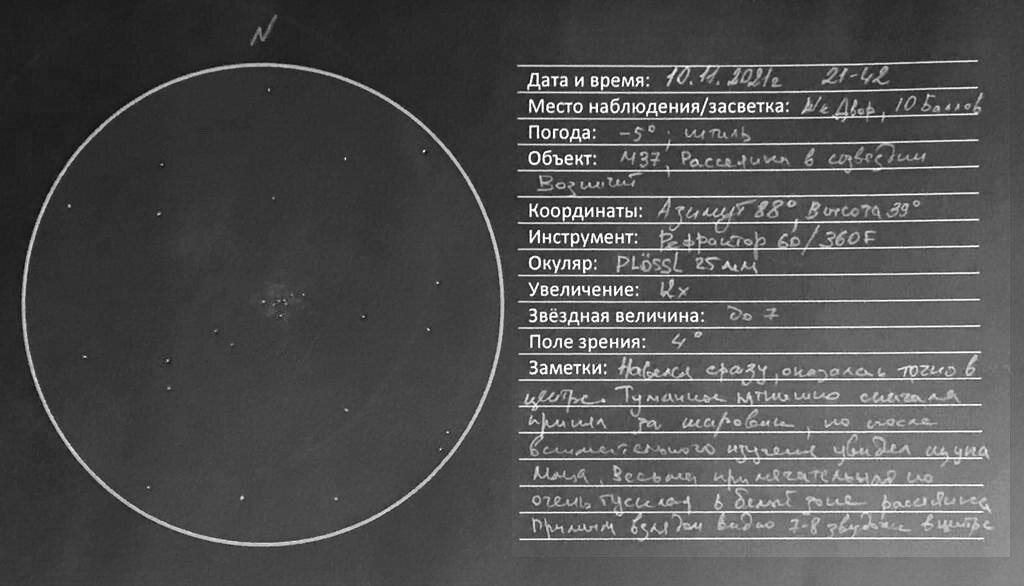 N
Дата и время: 10.11.2021г 21-42
Место наблюдения/засветка: Двор, 10 Баллов
Погода: -5°; штиль
Объект: М37, Рассеянка в созвездии
Возничий
Координаты: Азимут 88°, Высота 39°
Инструмент: Рефрактор 60/360F
Окуляр: PLÖSSL 25мм
Увеличение: х
Звёздная величина: до 7
Поле зрения: 4°
Заметки: Навелся сразу, оказалась точно в
центре. Туманное пятнышко сначала
принял за шаровик, но после
внимательного изучения увидел
Весьма примечательная но
очень тусклая в белой зоне рассеянка
Прямым взглядом видно 7-8 звёздочек в центре